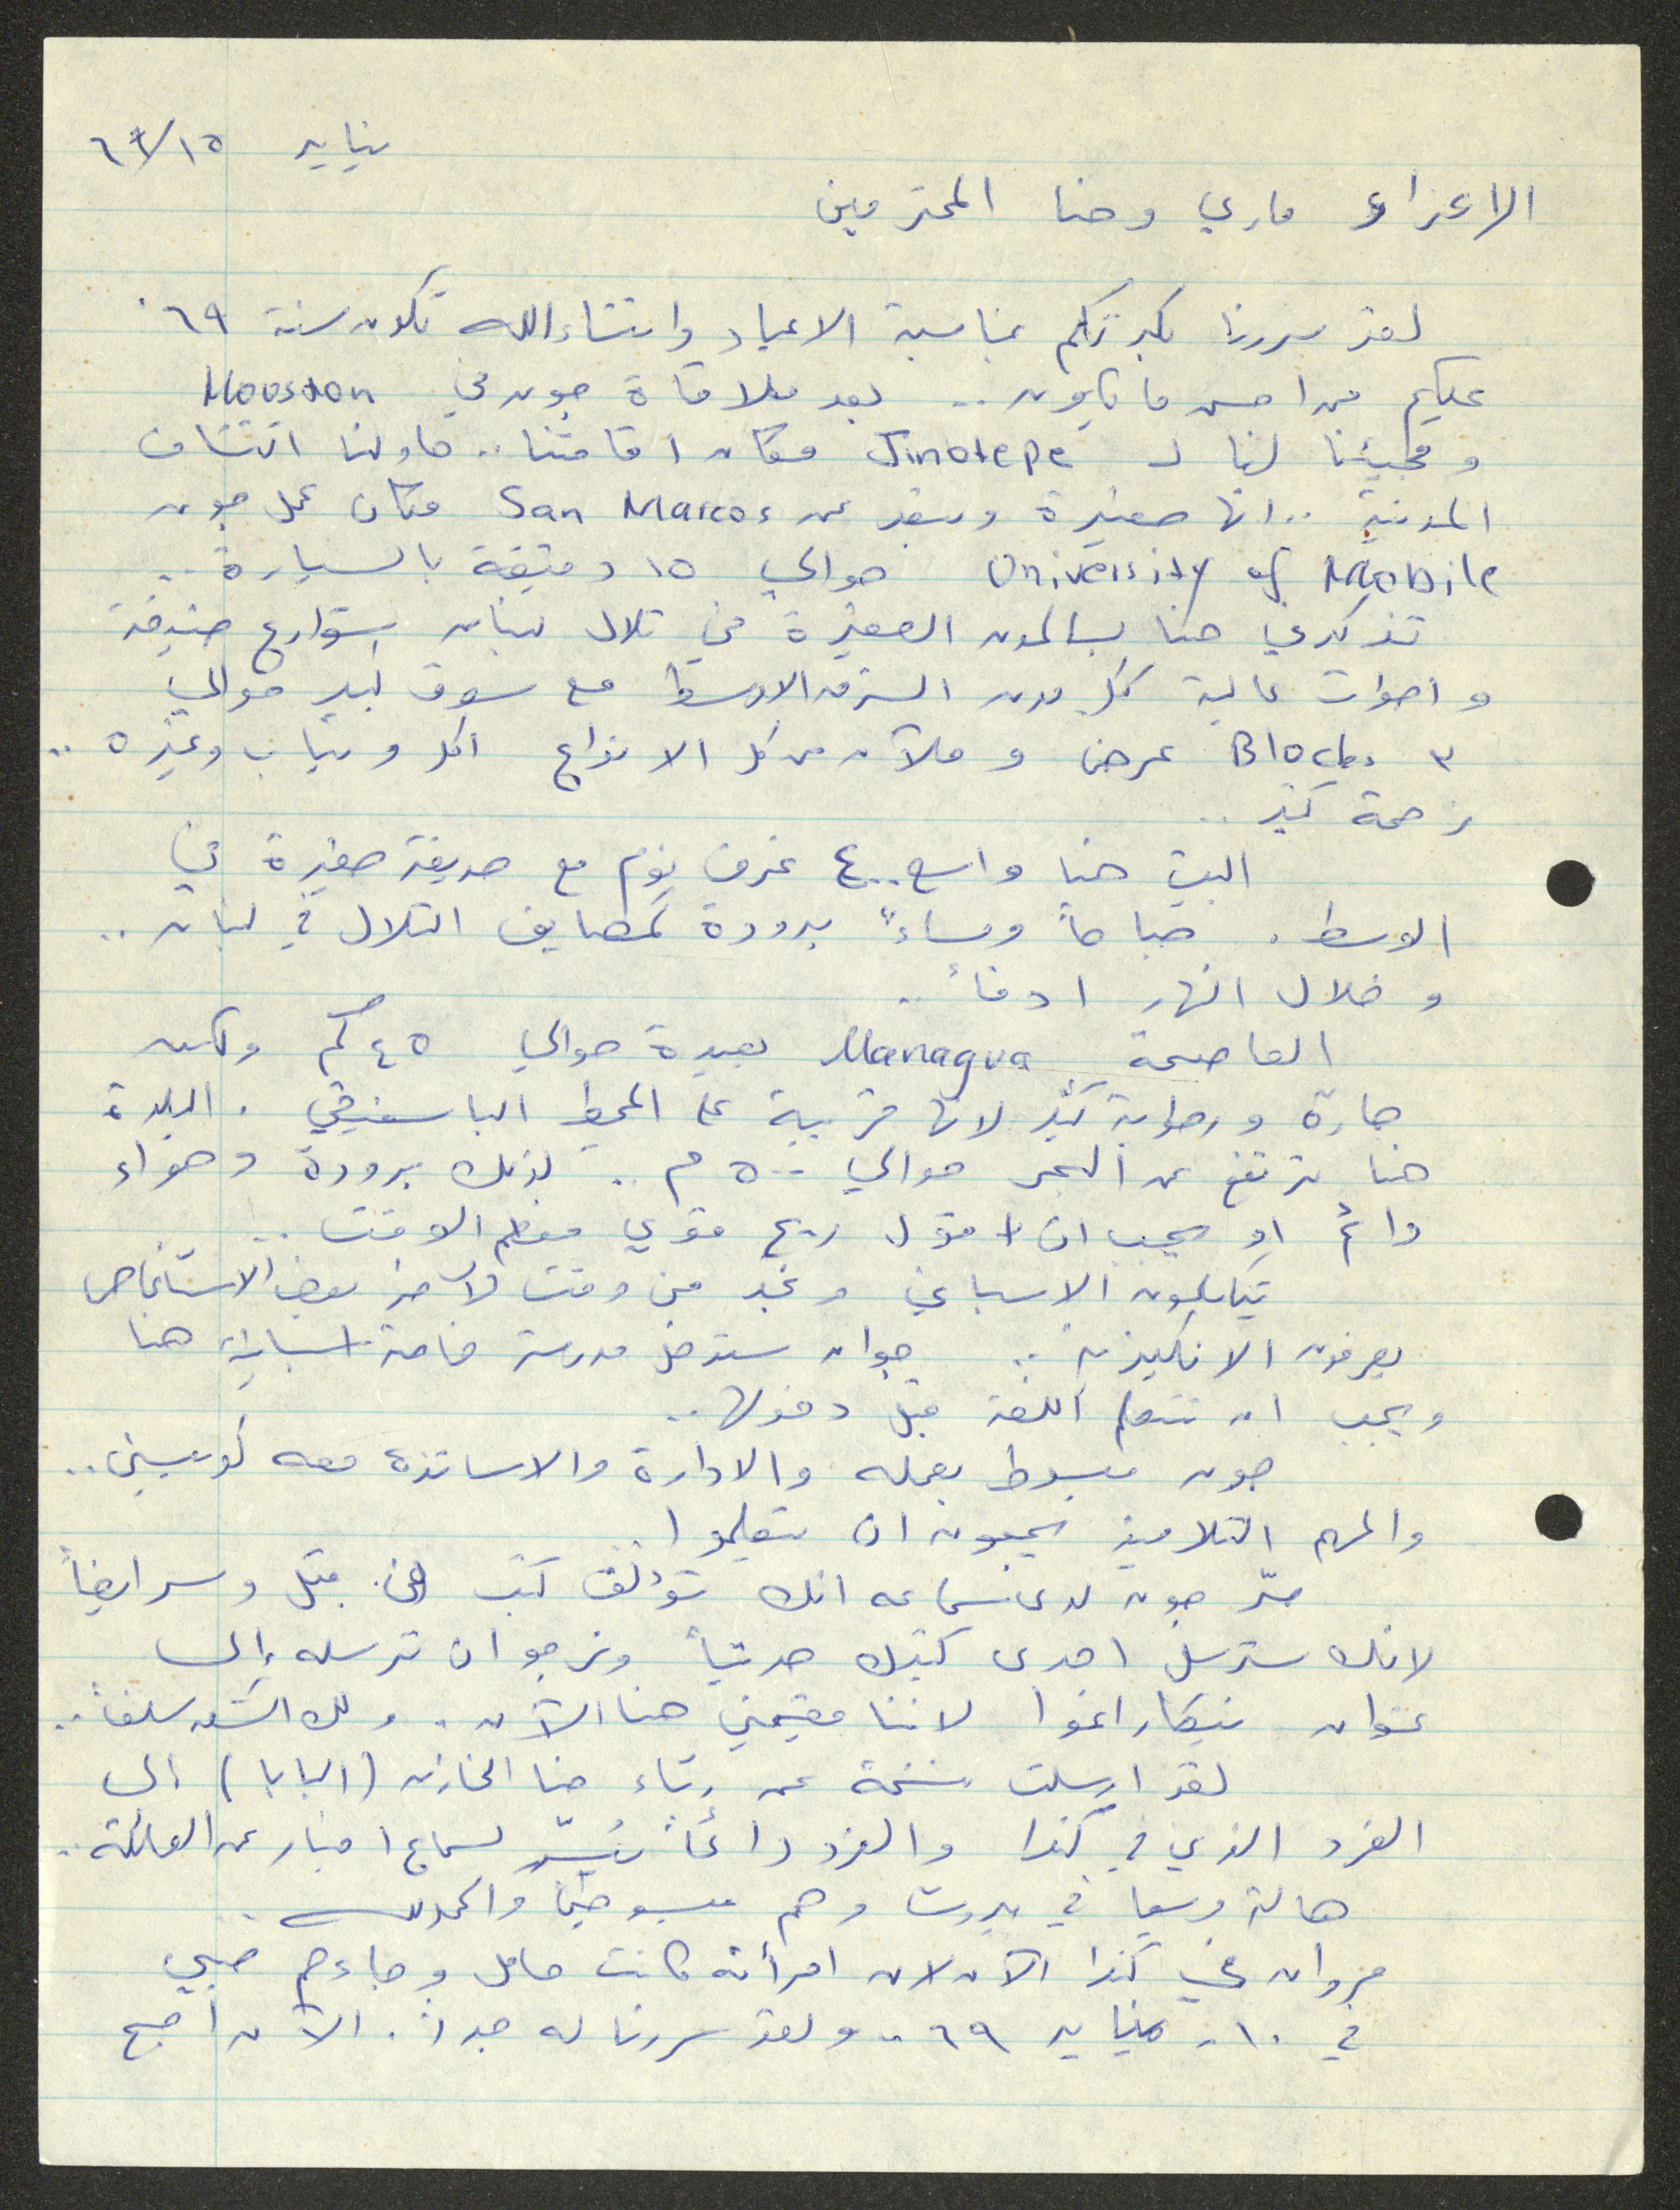 يناير ٦٩/١٥
الاعزاء ماري وحنا المحترمين
لقد سررنا بكرتكم بمناسبة الاعياد وانشاءالله تكون سنة ٦٩
عليكم من احسن ما يكون .. بعد ملاقاة جون في Houston
ومجيئنا لهنا لـ Jinotepe مكان اقامتنا .. حاولنا اكتشاف
المدينة .. انها صغيرة وتبعد عن San Marcos مكان عمل جون
University of Mobile حوالي ١٥ دقيقة بالسيارة ..
تذكرني هنا بالمدن الصغيرة في تلال لبنان شوارع ضيقة
واصوات عالية ككل مدن الشرق الاوسط مع سوق كبير حوالي
٣ Blocks عرض وملآن من كل الانواع اكل وثياب وغيره ..
زحمة كثير ..
البيت هنا واسع .. ٤ غرف نوم مع حديقة صغيرة في
الوسط . صباحاً ومساءً برودة كمصايف التلال في لبنان ..
وخلال النهار ادفأ ..
العاصمة Managua بعيدة حوالي ٤٥ كم ولكن
حارة ورطوبة كثير لانها قريبة على المحيط الباسفيقي . البلدة
هنا ترتفع عن البحر حوالي ٥٠٠ م .. لذلك برودة وهواء
دائم او يجب ان اقول ريح قوي معظم الوقت ..
يتكلمون الاسباني ونجد من وقت لآخر بعض الاشخاص
يعرفون الانكليزية .. جوان ستدخل مدرسة خاصة اسبانية هنا
ويجب ان تتعلم اللغة قبل دخولها ..
جون مبسوط بعمله والادارة والاساتذة معه كويسين ..
والمهم التلاميذ يحبون ان يتعلموا
سرّ جون لدى سماعه انك تؤلف كتب وسر ايضاً
لانك سترسل احدى كتبك حديثاً ونرجو ان ترسله إلى
عنوان نيكاراغوا لاننا مقيمين هنا الآن . ولك الشكر سلفاً ..
لقد ارسلت نسخة عن رثاء حنا الخازن (البابا) الى
الفرد الذي في كندا والفرد دائماً يُسرّ لسماع اخبار عن العائلة ..
هالة وسيما في بيروت وهم مبسوطين والحمدلله ..
مروان في كندا الآن لان امرأته كانت حامل وجاءهم صبي
في ١٠ يناير ٦٩ .. ولقد سررنا له جداً . الآن اصبح